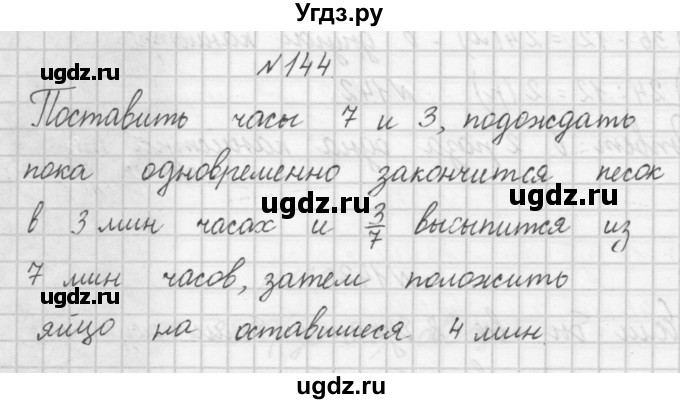 Угдз.ру
№144
Поставить часы 7 и 3, подождать
пока одновременно закончится песок
в 3 мин часах и 3/7 высыпится из
7 мин часов, затем положить
яйцо на оставшиеся 4 мин
ugdz.ru
ugdz.ru
ugdz.ru
ugdz.ru
ugdz.ru
ugdz.ru
ugdz.ru
ugdz.ru
ugdz.ru